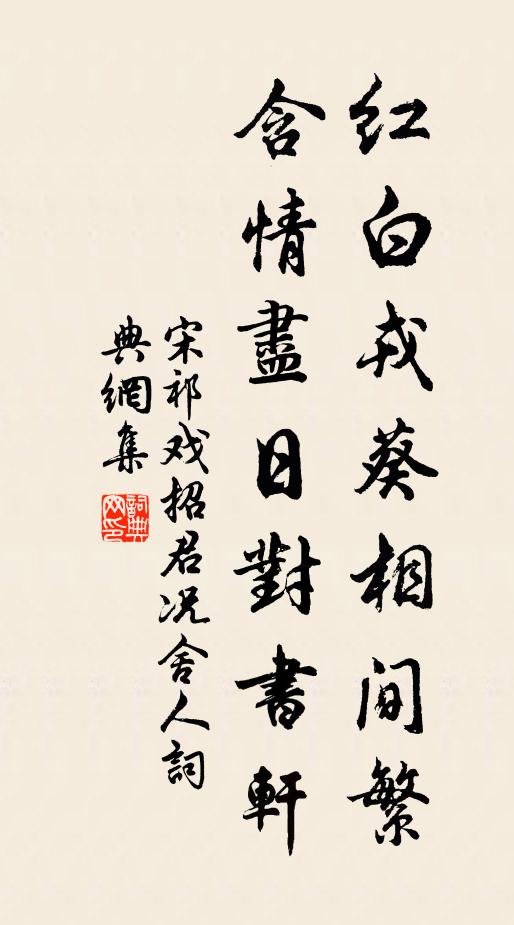 红白戎葵相间繁
含情盡日對書軒
宋祁戏招君况舍人詞
典網集
詞典網印